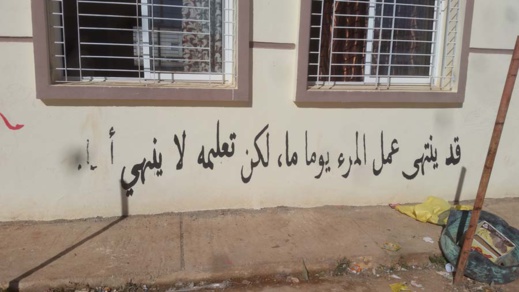 قد ينتهى عمل المرء يوما ما، لكن تعليمه لا ينهي